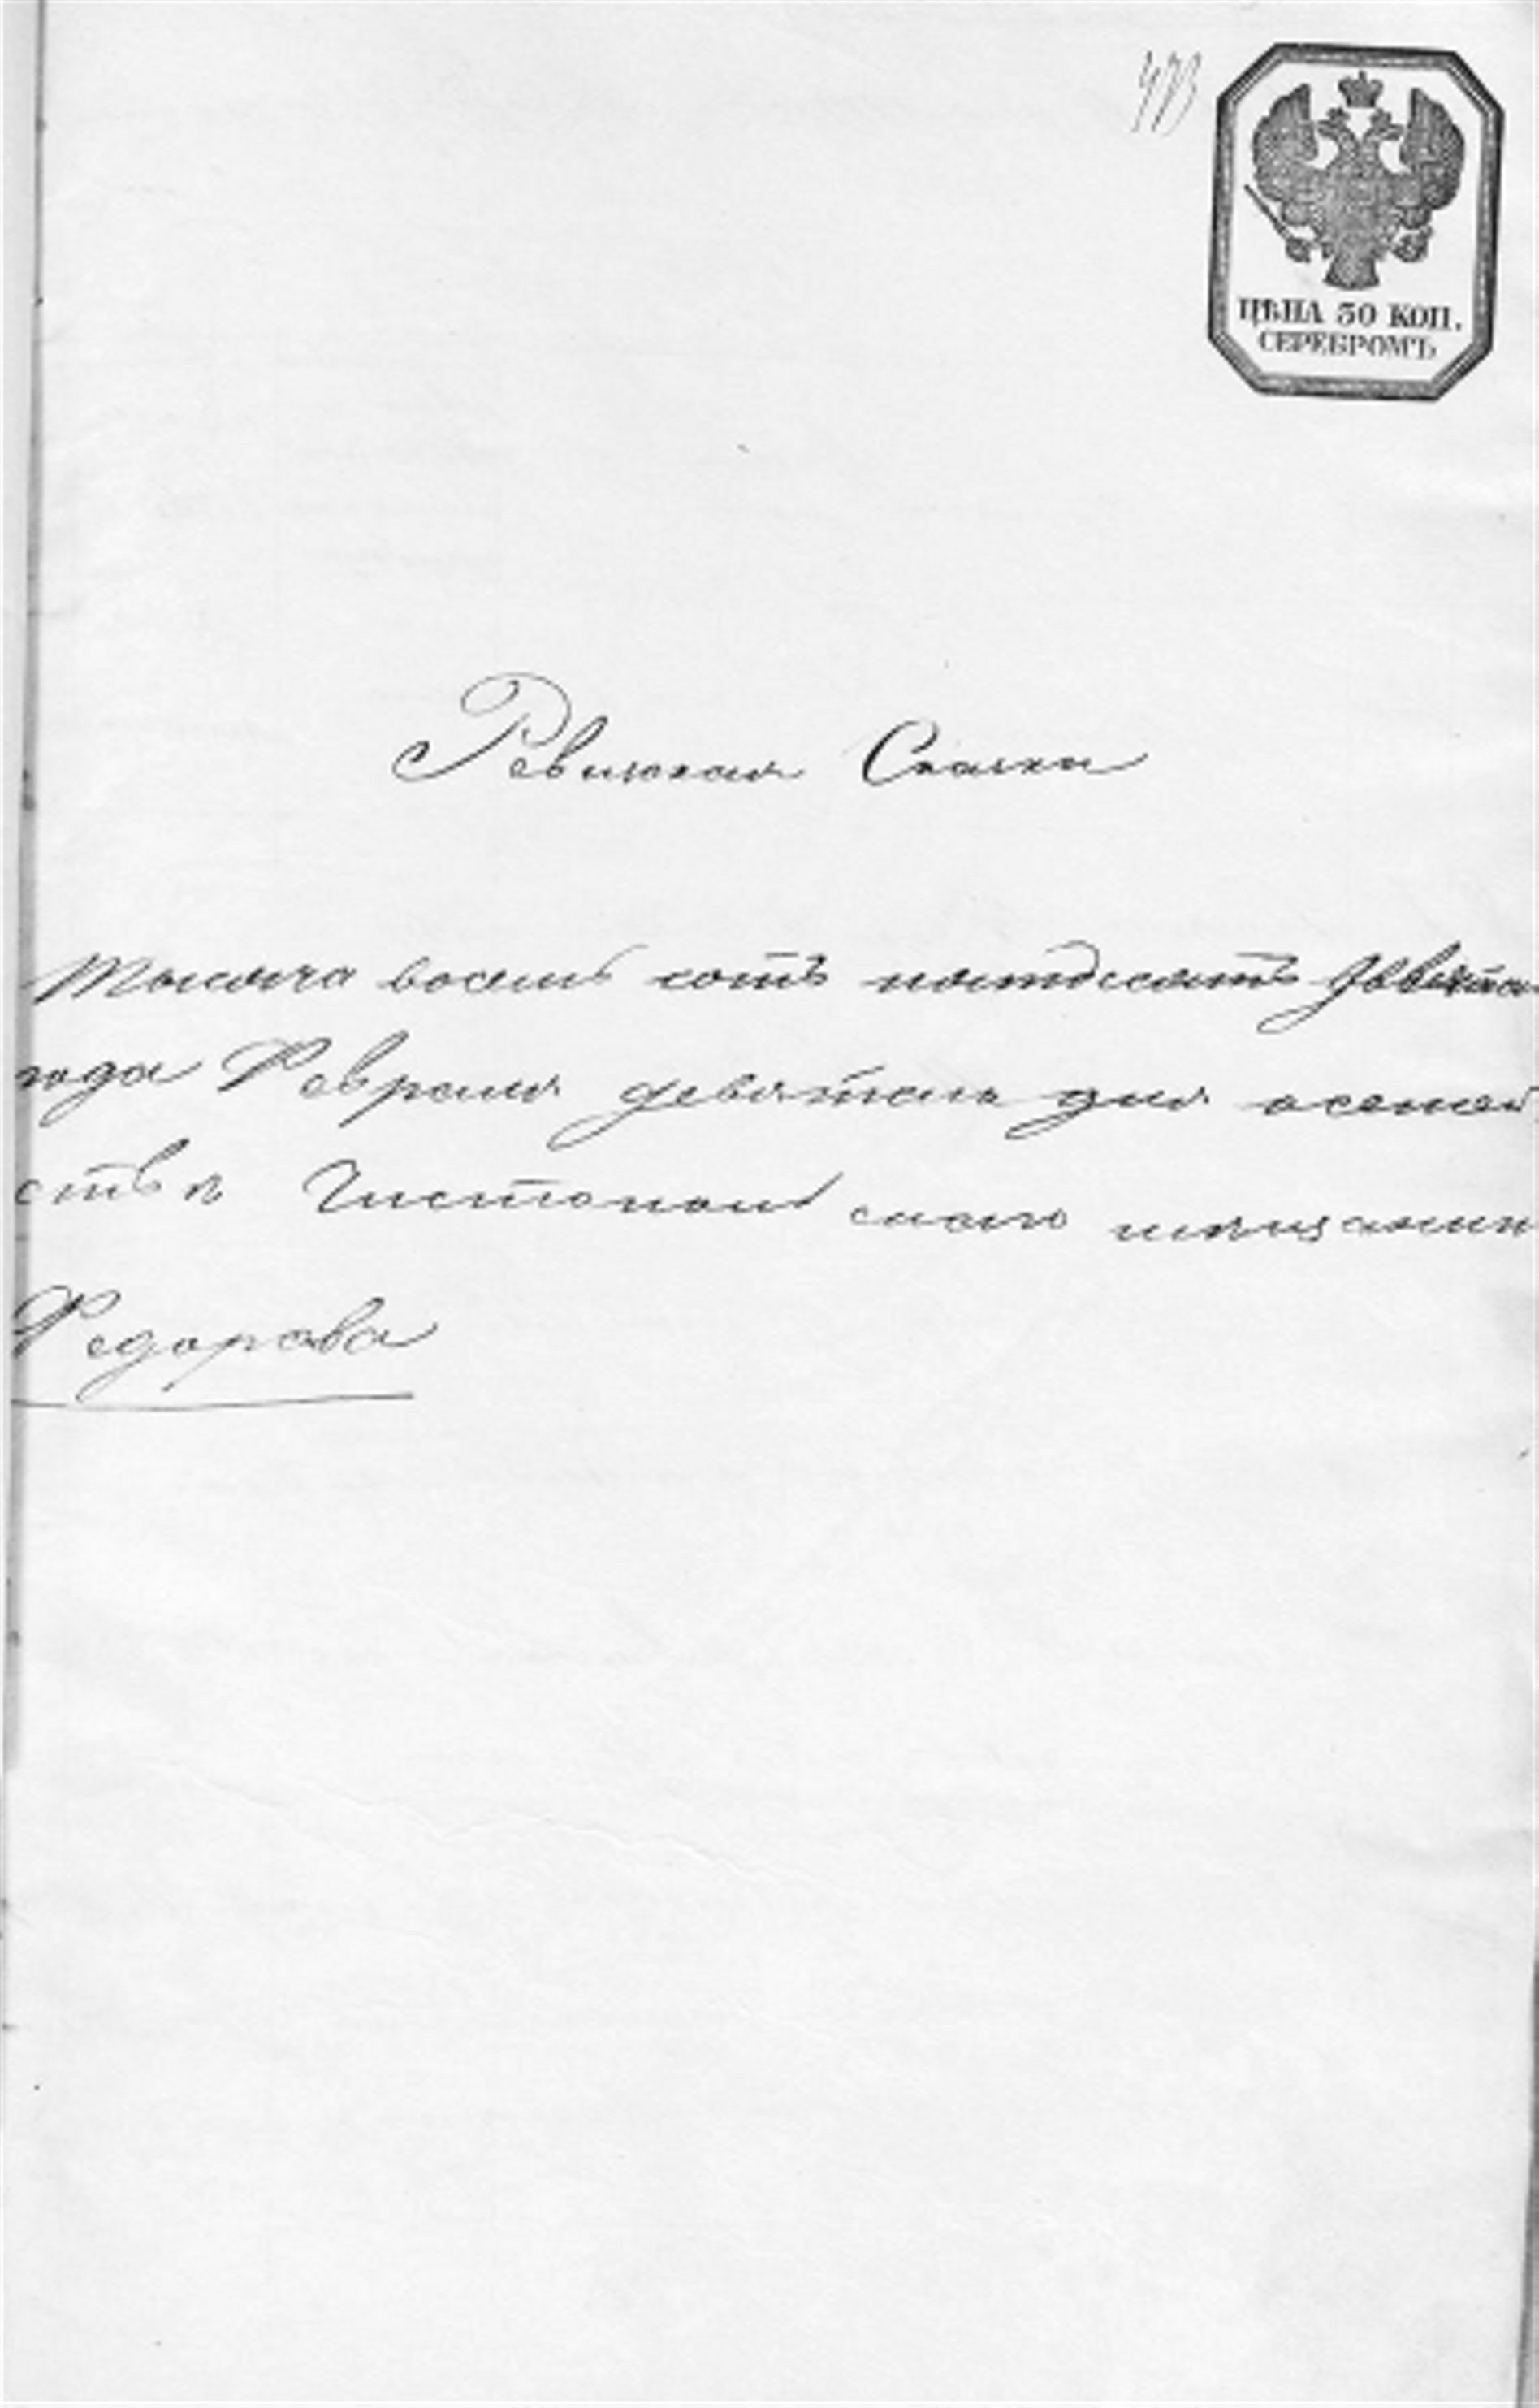 473
ЦѢНА 30 КОП.
СЕРЕБРОМЪ
Ревизская Сказка
Тысяча восемь сотъ пятдесятъ девятаго
года Февраля девятаго дня о семей
ствѣ Чистопольскаго мѣщанина
Федорова